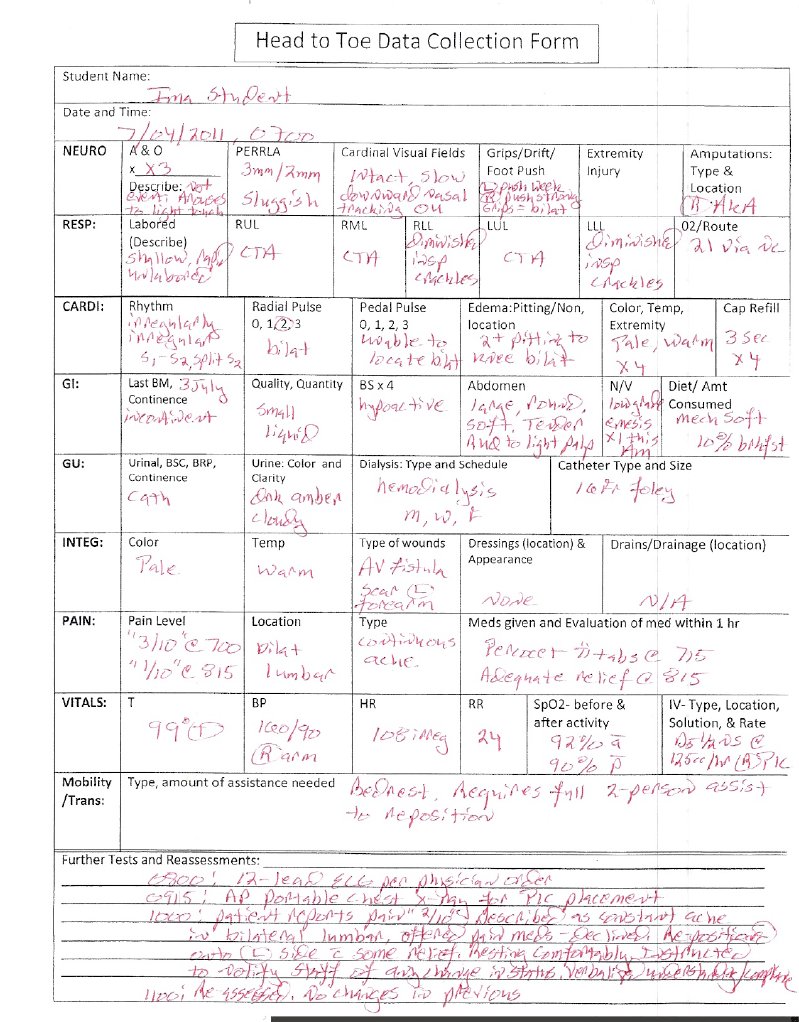 Head to Toe Data Collection Form
Student Name:
Ima Student
Date and Time:
7/04/2011, 0700
NEURO
A & O
x X3
Describe: Not
event; Arouses
to light touch
PERRLA
3mm/2mm
Sluggish
Cardinal Visual Fields
Intact, slow
downward nasal
tracking OU
Grips/Drift/
Foot Push
(L) push weak
(R) push strong
Grips = bilat
Extremity
Injury
Amputations:
Type &
Location
(R) AKA
RESP:
Labored
(Describe)
shallow, rapid
unlabored
RUL
CTA
RML
CTA
RLL
Diminished
insp
crackles
LUL
CTA
LLL
Diminished
insp
crackles
02/Route
2l via nc
CARDI:
Rhythm
irregularly
irregular
S1-S2, split S2
Radial Pulse
0, 1, 2, 3
bilat
Pedal Pulse
0, 1, 2, 3
unable to
locate bilat
Edema:Pitting/Non,
location
2+ pitting to
knee bilat
Color, Temp,
Extremity
Pale, warm
X4
Cap Refill
3 sec
X 4
GI:
Last BM, 3 July
Continence
incontinent
Quality, Quantity
Small
liquid
BS x 4
hypoactive
Abdomen
large, round,
soft, Tender
RUQ to light palp
N/V
emesis
X1 this
Am
Diet/ Amt
Consumed
mech soft
10% brkfst
GU:
Urinal, BSC, BRP,
Continence
Cath
Urine: Color and
Clarity
Drk amber
cloudy
Dialysis: Type and Schedule
hemodialysis
M, W, F
Catheter Type and Size
16 Fr foley
INTEG:
Color
Pale
Temp
warm
Type of wounds
AV fistula
scar (L)
forearm
Dressings (location) &
Appearance
None
Drains/Drainage (location)
N/A
PAIN:
Pain Level
"3/10" @ 700
"1/10" @ 815
Location
bilat
lumbar
Type
continuous
ache
Meds given and Evaluation of med within 1 hr
Percocet ii tabs @ 715
Adequate relief @ 815
VITALS:
T
99° (T)
BP
160/90
(R) arm
HR
108 irreg
RR
24
SpO2- before &
after activity
92% a
90% p
IV- Type, Location,
Solution, & Rate
D5 1/2 NS @
125cc/hr (R) PIC
Mobility
/Trans:
Type, amount of assistance needed
Bedrest. Requires full 2-person assist
to reposition
Further Tests and Reassessments:
0800: 12-lead ECG per physician order
0915: AP Portable Chest x-ray for PIC placement
1000: patient reports pain "2/10" Describes as constant ache
in bilateral lumbar, offered pain meds - Declined. Re-positioned
onto (L) side c some relief. Resting comfortably. Instructed
to notify staff of any change in status. verbalizes
1100: Re assessed. No changes in previous